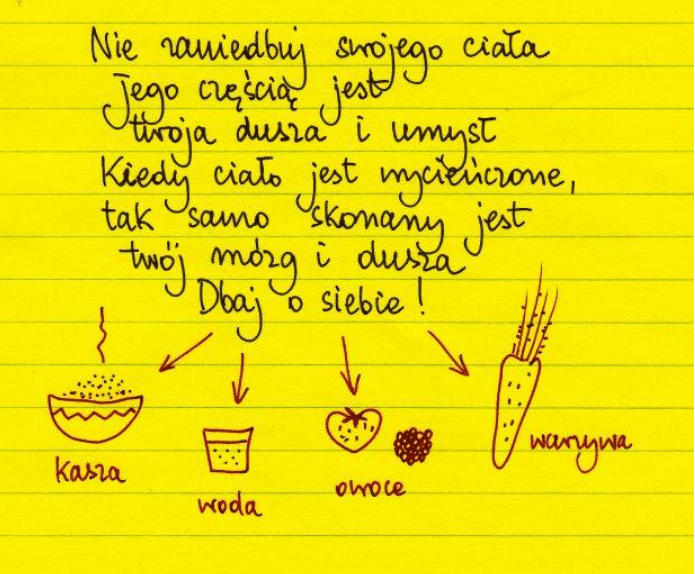 Nie zaniedbuj swojego ciała
Jego częścią jest
twoja dusza i umysł
Kiedy ciało jest wycieńczone,
tak samo skonany jest
twój mózg i dusza
Dbaj o siebie!
kasza
woda
owoce
warzywa